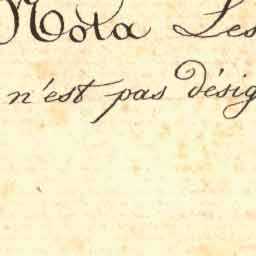 Nota Les
n'est pas désig